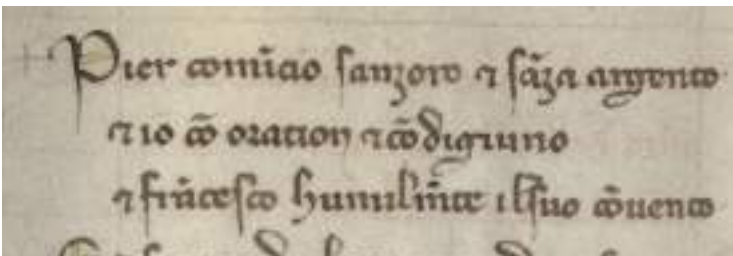 Pier comīcio sanzoro ⁊ sāza argento
⁊ io cō oration ⁊ cō digiuno
⁊ frācesco humilmēte il suo cōuento